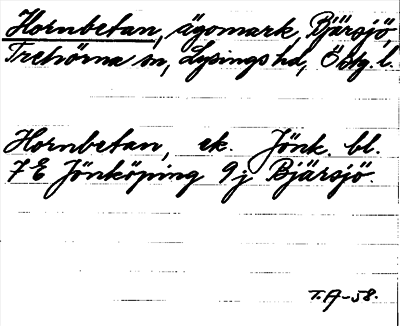 Hornbetan, ägomark, Bjärsjö,
Trehörna sn, Lysings hd, Östg. l.
Hornbetan, ek. Jönk. bl.
7 E Jönköping 9 j Bjärsjö.
T.A-58.